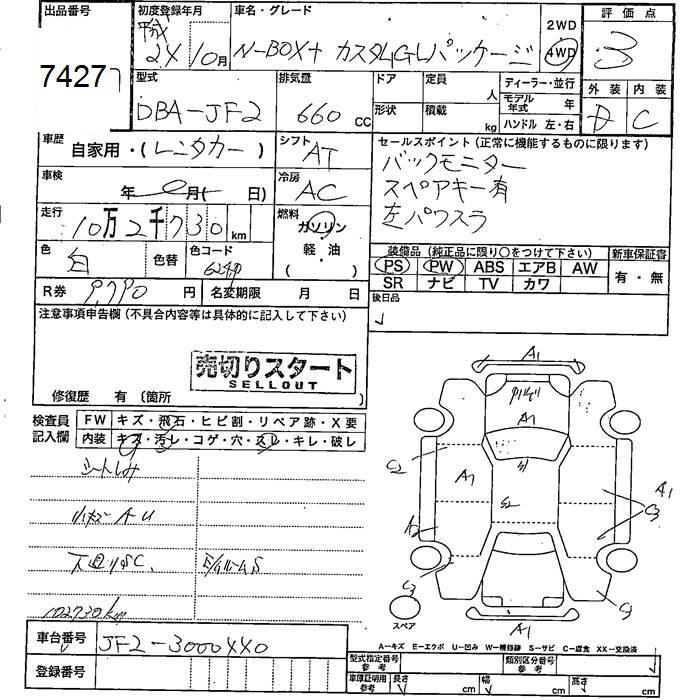 出品番号 初度登録年月 車名・グレード 評価点
7427
平成 24/10月 N-BOX+ カスタムGLパッケージ 2WD 4WD 3
型式 排気量 ドア 定員 人 ディーラー・並行 外装 内装
DBA-JF2 660 cc 形状 積載 kg モデル年式 年 ハンドル 左・右 D C
車歴 自家用・(レンタカー) シフト AT セールスポイント(正常に機能するものに限ります)
バックモニター
車検 年 月( 日) 冷房 AC スペアキー有
走行 10万2千730km 燃料 ガソリン 軽・油 ( ) 左パワスラ
色 白 色替 色コード 装備品(純正品に限り○をつけて下さい) 新車保証書
PS PW ABS エアB AW 有・無
SR ナビ TV カワ
R券 9,790円 名変期限 月 日 後日品
注意事項申告欄(不具合内容等は具体的に記入して下さい)
売切りスタート
SELLOUT
修復歴 有 (箇所 )
検査員記入欄 FW キズ・飛石・ヒビ割・リペア跡・X要
内装 キズ・汚レ・コゲ・穴・スレ・キレ・破レ
シートしみ
A-U
102730km
A1
A1
C2 A1 S1 A1
S2 C3
A2
C3 C3
スペア A1
A-キズ E-エクボ U-凹み W-補修跡 S-サビ C-腐食 XX-交換済
車台番号 JF2-3000XX0
型式指定番号 参考 類別区分番号 参考
登録番号
車庫証明用 参考 長さ cm 幅 cm 高さ cm